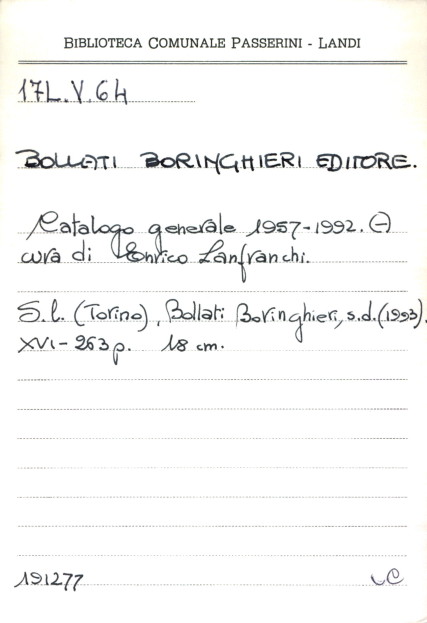 BIBLIOTECA COMUNALE PASSERINI - LANDI
17L.V.64
BOLLATI BORINGHIERI EDITORE.
Catalogo generale 1957-1992. A
cura di Enrico Lanfranchi.
S.l. (Torino), Bollati Boringhieri, s.d. (1993).
XVI- 263 p. 18 cm.
191277